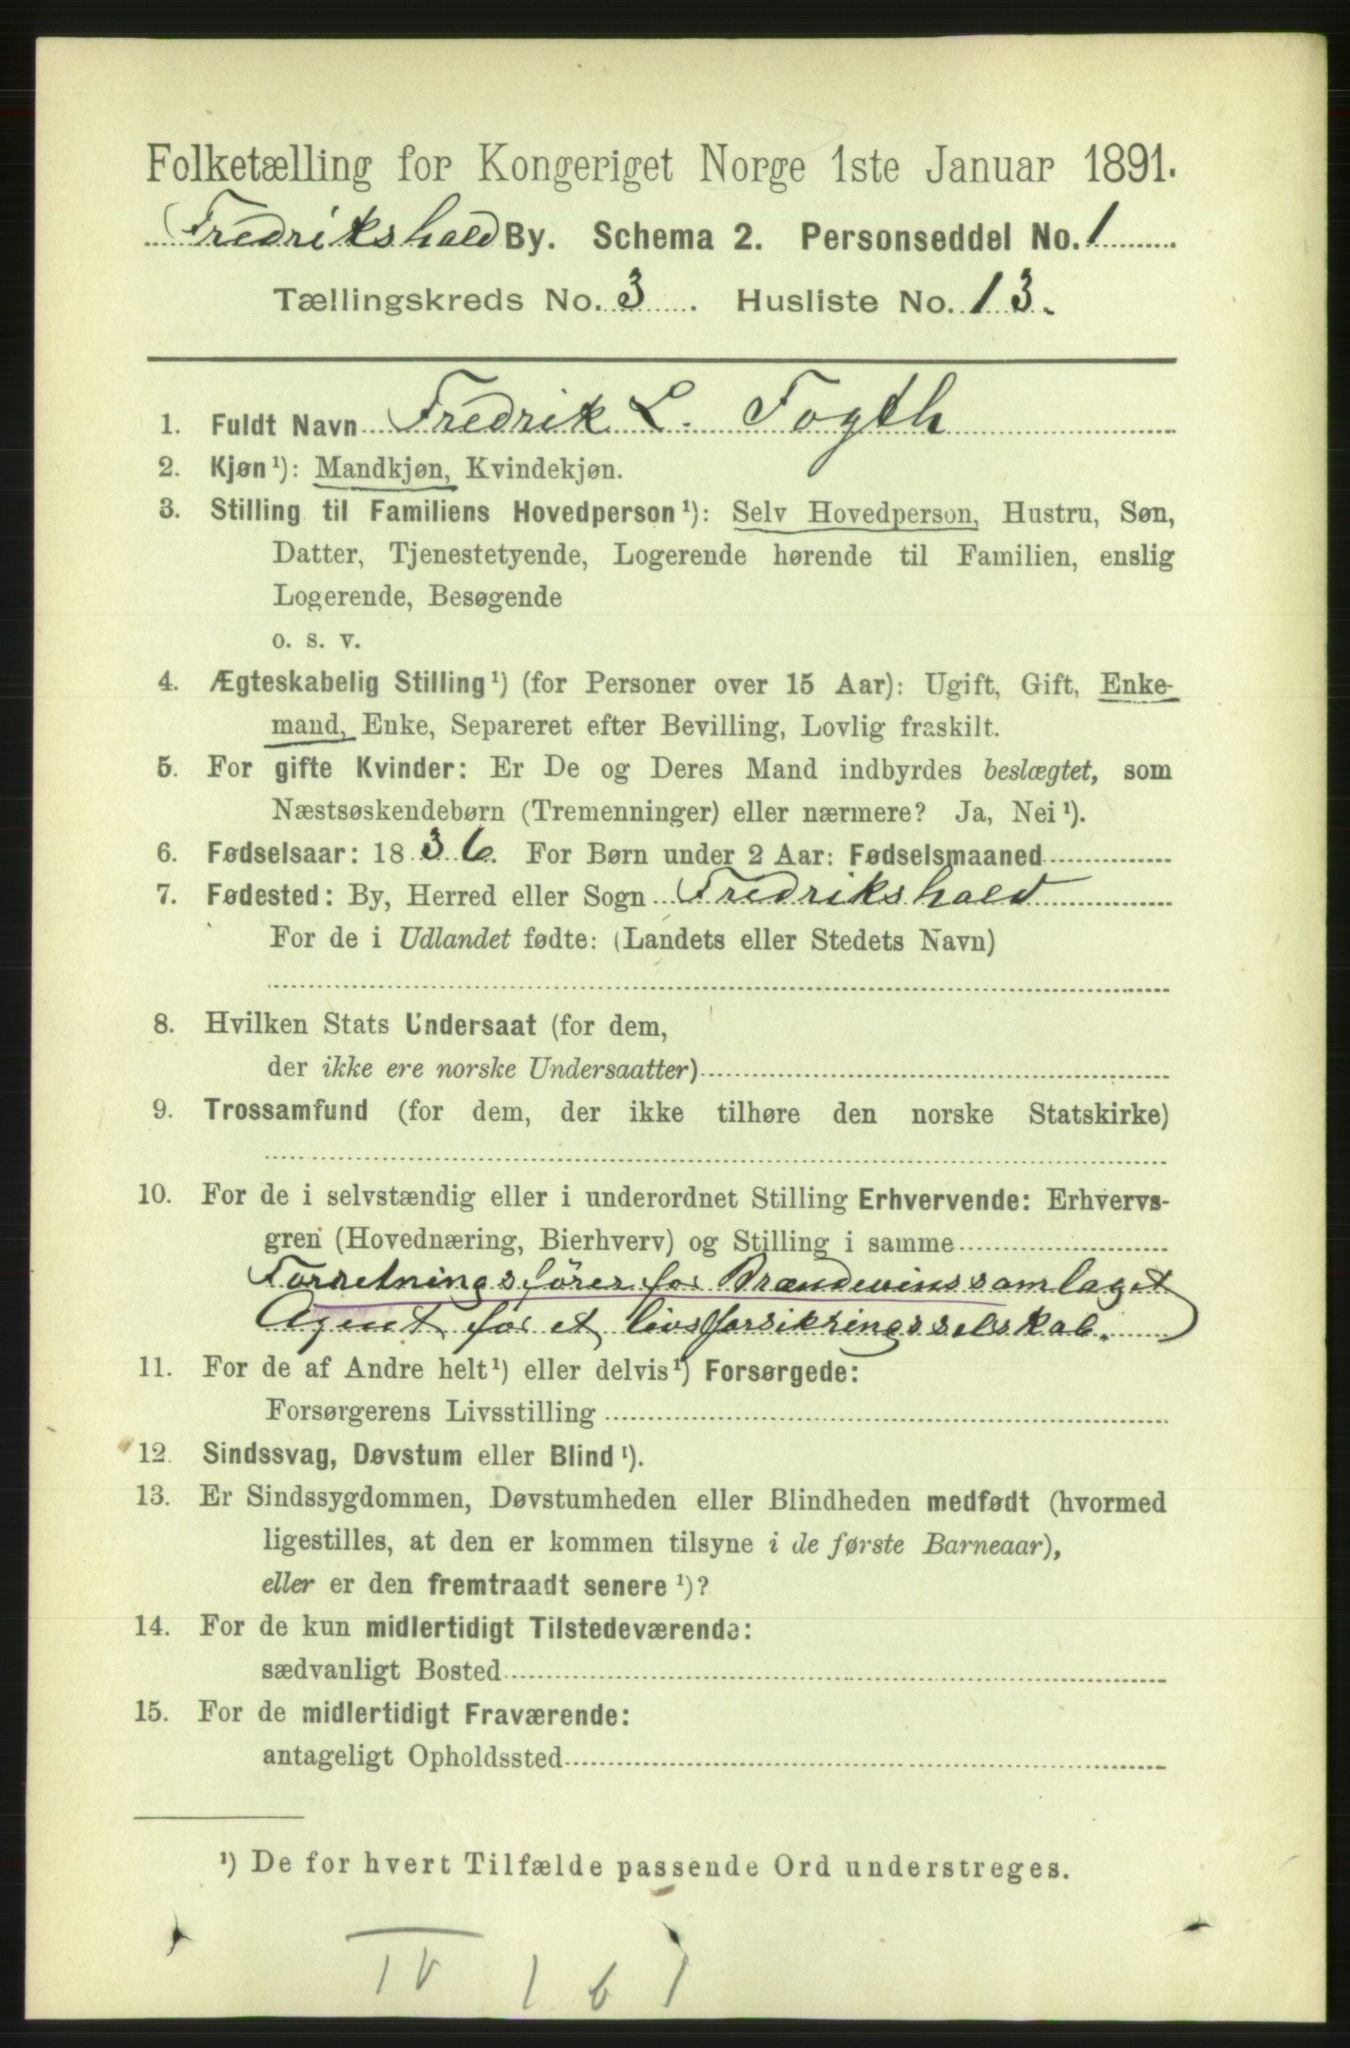 Folketælling for Kongeriget Norge 1ste Januar 1891.
Fredrikshald By. Schema 2. Personseddel No. 1
Tællingskreds No. 3. Husliste No. 13.
1. Fuldt Navn Fredrik L. Fogth
2. Kjøn¹): Mandkjøn, Kvindekjøn.
3. Stilling til Familiens Hovedperson¹): Selv Hovedperson, Hustru, Søn,
Datter, Tjenestetyende, Logerende hørende til Familien, enslig
Logerende, Besøgende
o. s. v.
4. Ægteskabelig Stilling¹) (for Personer over 15 Aar): Ugift, Gift, Enke-
mand, Enke, Separeret efter Bevilling, Lovlig fraskilt.
5. For gifte Kvinder: Er De og Deres Mand indbyrdes beslægtet, som
Næstsøskendebørn (Tremenninger) eller nærmere? Ja, Nei¹).
6. Fødselsaar: 1836. For Børn under 2 Aar: Fødselsmaaned
7. Fødested: By, Herred eller Sogn Fredrikshald
For de i Udlandet fødte: (Landets eller Stedets Navn)
8. Hvilken Stats Undersaat (for dem,
der ikke ere norske Undersaatter)
9. Trossamfund (for dem, der ikke tilhøre den norske Statskirke)
10. For de i selvstændig eller i underordnet Stilling Erhvervende: Erhvervs-
gren (Hovednæring, Bierhverv) og Stilling i samme
Forretningsfører for Brændevinssamlaget
Agent for et livsforsikringsselskab.
11. For de af Andre helt¹) eller delvis¹) Forsørgede:
Forsørgerens Livsstilling
12. Sindssvag, Døvstum eller Blind¹).
13. Er Sindssygdommen, Døvstumheden eller Blindheden medfødt (hvormed
ligestilles, at den er kommen tilsyne i de første Barneaar),
eller er den fremtraadt senere¹)?
14. For de kun midlertidigt Tilstedeværende:
sædvanligt Bosted
15. For de midlertidigt Fraværende:
antageligt Opholdssted
¹) De for hvert Tilfælde passende Ord understreges.
IV 1 6 1